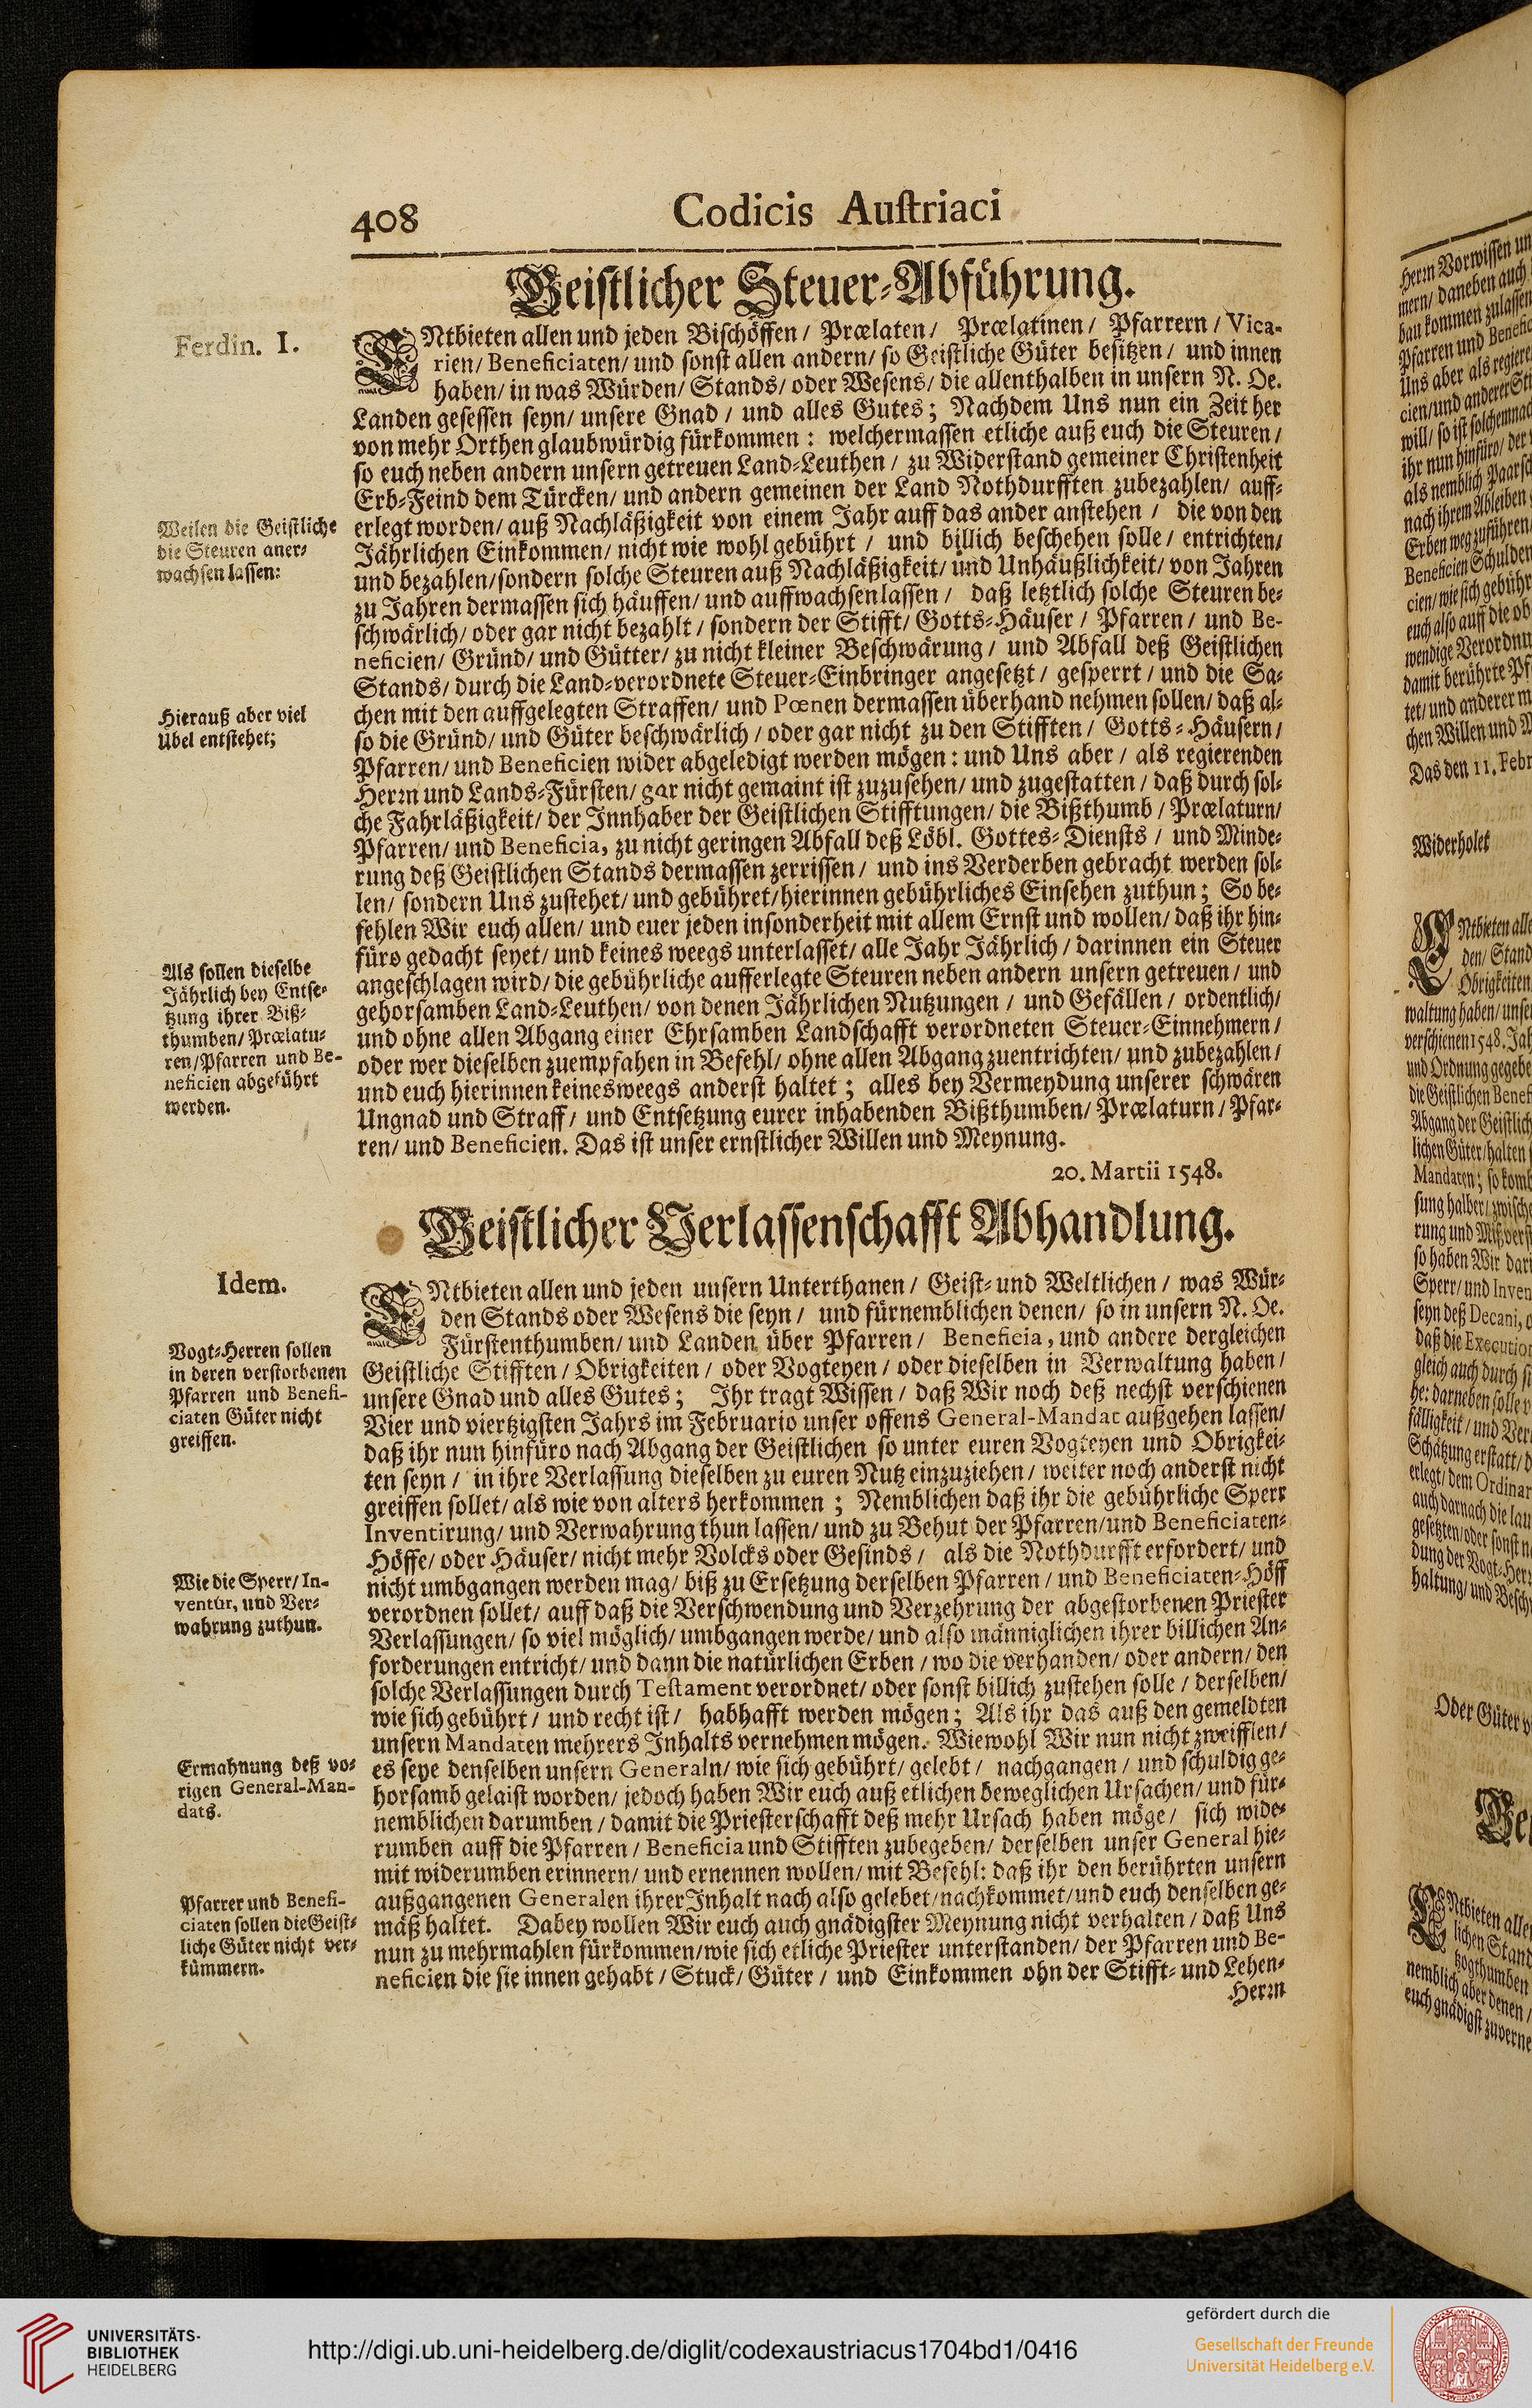 408
Codicis Austriaci
Geistlicher Steuer-Abführung.
Ferdin. I.
ENtbieten allen und jeden Bischöffen / Prælaten / Prælatinen / Pfarrern / Vica-
rien/ Beneficiaten/ und sonst allen andern/ so Geistliche Güter besitzen / und innen
haben/ in was Würden/ Stands/ oder Wesens/ die allenthalben in unsern N. Oe.
Landen gesessen seyn/ unsere Gnad / und alles Gutes; Nachdem Uns nun ein Zeit her
von mehr Orthen glaubwürdig fürkommen: welchermassen etliche auß euch die Steuren /
so euch neben andern unsern getreuen Land-Leuthen / zu Widerstand gemeiner Christenheit
Erb-Feind dem Türcken/ und andern gemeinen der Land Nothdurfften zubezahlen/ auff-
Weilen die Geistliche
die Steuren aner-
wachsen lassen:
erlegt worden/ auß Nachläßigkeit von einem Jahr auff das ander anstehen / die von den
Jährlichen Einkommen/ nicht wie wohl gebührt / und billich beschehen solle / entrichten/
und bezahlen/sondern solche Steuren auß Nachläßigkeit/ und Unhäußlichkeit/ von Jahren
zu Jahren dermassen sich häuffen/ und auffwachsen lassen / daß letztlich solche Steuren be-
schwärlich/ oder gar nicht bezahlt / sondern der Stifft/ Gotts-Häuser / Pfarren / und Be-
neficien/ Gründ/ und Gütter/ zu nicht kleiner Beschwärung / und Abfall deß Geistlichen
Stands/ durch die Land-verordnete Steuer-Einbringer angesetzt / gesperrt / und die Sa-
Hierauß aber viel
Übel entstehet;
chen mit den auffgelegten Straffen/ und Pœnen dermassen überhand nehmen sollen/ daß al-
so die Gründ/ und Güter beschwärlich / oder gar nicht zu den Stifften / Gotts-Häusern /
Pfarren/ und Beneficien wider abgeledigt werden mögen: und Uns aber / als regierenden
Herrn und Lands-Fürsten/ gar nicht gemaint ist zuzusehen/ und zugestatten / daß durch sol-
che Fahrläßigkeit/ der Innhaber der Geistlichen Stifftungen/ die Bißthumb / Prælaturn/
Pfarren/ und Beneficia, zu nicht geringen Abfall deß Löbl. Gottes-Diensts / und Minde-
rung deß Geistlichen Stands dermassen zerrissen / und ins Verderben gebracht werden sol-
len/ sondern Uns zustehet/ und gebühret/ hierinnen gebührliches Einsehen zuthun; So be-
fehlen Wir euch allen/ und euer jeden insonderheit mit allem Ernst und wollen/ daß ihr hin-
füro gedacht seyet/ und keines weegs unterlasset/ alle Jahr Jährlich / darinnen ein Steuer
Als sollen dieselbe
Jährlich bey Entse-
tzung ihrer Biß-
thumben/ Prælatu-
ren/Pfarren und Be-
neficien abgeführt
werden.
angeschlagen wird/ die gebührliche aufferlegte Steuren neben andern unsern getreuen / und
gehorsamben Land-Leuthen/ von denen Jährlichen Nutzungen / und Gefällen / ordentlich/
und ohne allen Abgang einer Ehrsamben Landschafft verordneten Steuer-Einnehmern /
oder wer dieselben zuempfahen in Befehl/ ohne allen Abgang zuentrichten/ und zubezahlen /
und euch hierinnen keinesweegs anderst haltet; alles bey Vermeydung unserer schwären
Ungnad und Straff / und Entsetzung eurer inhabenden Bißthumben/ Prælaturn / Pfar-
ren/ und Beneficien. Das ist unser ernstlicher Willen und Meynung.
20. Martii 1548.
Geistlicher Verlassenschafft Abhandlung.
Idem.
ENtbieten allen und jeden unsern Unterthanen / Geist- und Weltlichen / was Wür-
den Stands oder Wesens die seyn / und fürnemblichen denen/ so in unsern N. Oe.
Fürstenthumben/ und Landen über Pfarren / Beneficia, und andere dergleichen
Vogt-Herren sollen
in deren verstorbenen
Pfarren und Benefi-
ciaten Güter nicht
greiffen.
Geistliche Stifften / Obrigkeiten / oder Vogteyen / oder dieselben in Verwaltung haben /
unsere Gnad und alles Gutes; Ihr tragt Wissen / daß Wir noch deß nechst verschienen
Vier und viertzigsten Jahrs im Februario unser offens General-Mandat außgehen lassen/
daß ihr nun hinfüro nach Abgang der Geistlichen so unter euren Vogteyen und Obrigkei-
ten seyn / in ihre Verlassung dieselben zu euren Nutz einzuziehen / weiter noch anderst nicht
greiffen sollet/ als wie von alters herkommen; Nemblichen daß ihr die gebührliche Sperr
Inventirung/ und Verwahrung thun lassen/ und zu Behut der Pfarren/und Beneficiaten-
Höffe/ oder Häuser/ nicht mehr Volcks oder Gesinds / als die Nothdurfft erfordert/ und
Wie die Sperr/ In-
ventur, und Ver-
wahrung zuthun.
nicht umbgangen werden mag/ biß zu Ersetzung derselben Pfarren / und Beneficiaten-Höff
verordnen sollet/ auff daß die Verschwendung und Verzehrung der abgestorbenen Priester
Verlassungen/ so viel möglich/ umbgangen werde/ und also männiglichen ihrer billichen An-
forderungen entricht/ und dann die natürlichen Erben / wo die verhanden/ oder andern/ den
solche Verlassungen durch Testament verordnet/ oder sonst billich zustehen solle / derselben/
wie sich gebührt / und recht ist / habhafft werden mögen; Als ihr das auß den gemeldten
unsern Mandaten mehrers Inhalts vernehmen mögen. Wiewohl Wir nun nicht zweifflen /
Ermahnung deß vo-
rigen General-Man-
dats.
es seye denselben unsern Generaln/ wie sich gebührt/ gelebt / nachgangen / und schuldig ge-
horsamb gelaist worden/ jedoch haben Wir euch auß etlichen beweglichen Ursachen/ und für-
nemblichen darumben / damit die Priesterschafft deß mehr Ursach haben möge / sich wide-
rumben auff die Pfarren / Beneficia und Stifften zubegeben/ derselben unser General hie-
mit widerumben erinnern/ und ernennen wollen/ mit Befehl: daß ihr den berührten unsern
Pfarrer und Benefi-
ciaten sollen die Geist-
liche Güter nicht ver-
kümmern.
außgangenen Generalen ihrer Inhalt nach also gelebet/nachkommet/und euch denselben ge-
mäß haltet. Dabey wollen Wir euch auch gnädigster Meynung nicht verhalten / daß Uns
nun zu mehrmahlen fürkommen/wie sich etliche Priester unterstanden/ der Pfarren und Be-
neficien die sie innen gehabt / Stuck/ Güter / und Einkommen ohn der Stifft- und Lehen-
Herrn
Herrn Vorwissen un
mern/ daneben auch
bau kommen zulassen
Pfarren und Benefic
Uns aber als regiere
will/ so ist solchemnac
nach ihrem Ableiben
Beneficien Schulden
wendige Verordnu
damit berührte Pf
chen Willen und M
Das den 11. Febr
Widerholet
ENtbieten alle
den/ Stand
Obrigkeiten
waltung haben/ unse
verschienen 1548. Jah
und Ordnung gegebe
die Geistlichen Benef
Abgang der Geistlich
lichen Güter/halten
Mandaten; so komb
so haben Wir dari
Sperr/ und Inven
seyn deß Decani, o
daß die Execution
gleich auch durch si
Schätzung erstatt/ d
erlegt/ dem Ordinar
auch darnach die lau
gesetzten/oder sonst n
dung der Vogt-Her
haltung/ und Besch
Oder Güter v
Gei
ENtbieten alle
lichen Stand
nemblich aber denen /
euch gnädigst zuverne
UNIVERSITÄTS-
BIBLIOTHEK
HEIDELBERG
http://digi.ub.uni-heidelberg.de/diglit/codexaustriacus1704bd1/0416
gefördert durch die
Gesellschaft der Freunde
Universität Heidelberg e.V.